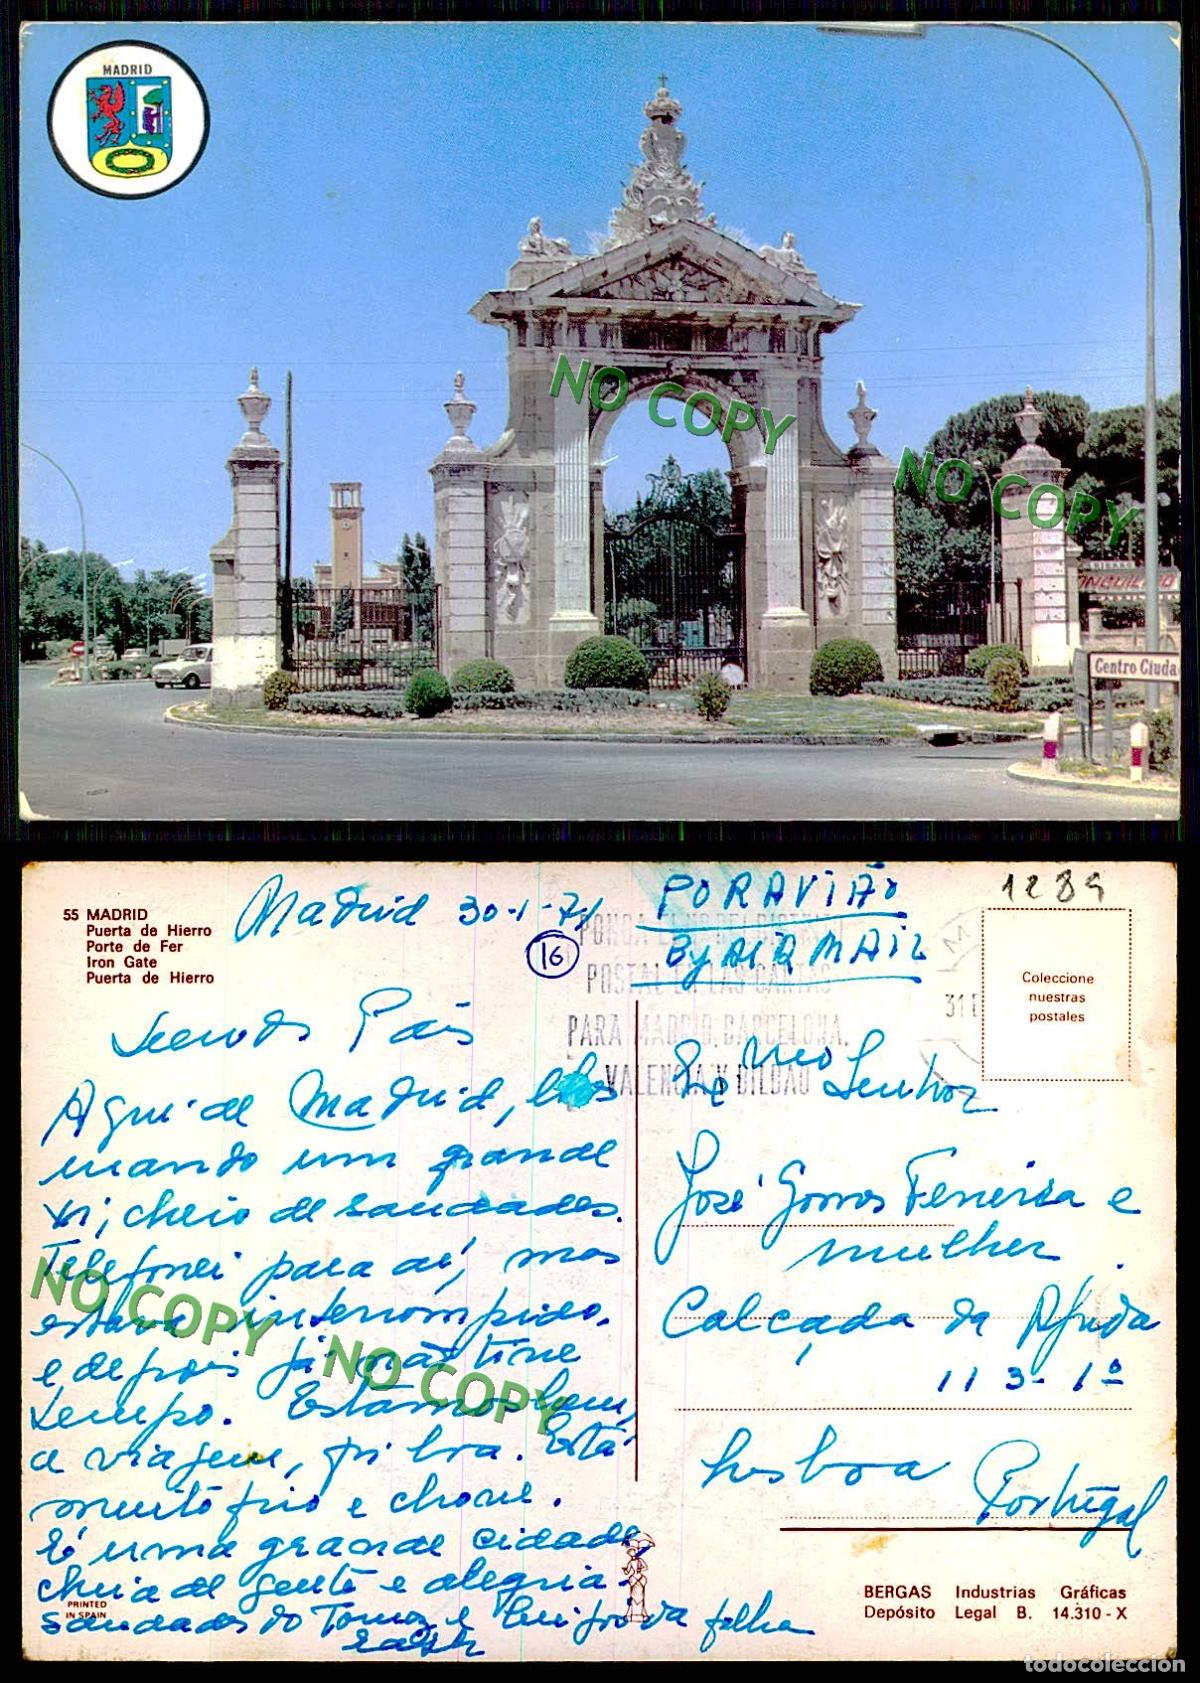 MADRID
NO COPY
NO COPY
Centro Ciuda
55 MADRID
Puerta de Hierro
Porte de Fer
Iron Gate
Puerta de Hierro
Madrid 30-1-74
16
POR AVIÃO
By AIR MAIL
1289
PONGA EL Nº DEL DISTRITO
POSTAL EN LAS CARTAS
PARA MADRID, BARCELONA,
VALENCIA Y BILBAO
31 E
Coleccione
nuestras
postales
Pais
Aqui de Madrid,
mando um grande
cheio de saudades.
Telefonei para aí, mas
estava interrompido.
e depois já não tive
tempo. Estamos bem,
a viagem, foi boa. Está
muito frio e chove.
É uma grande cidade,
cheia de gente e alegria.
saudades do Tomaz e beijos da filha
NO COPY
NO COPY
Senhor
José Gomes Ferreira e
mulher
Calçada da Ajuda
113-1º
Lisboa
Portugal
PRINTED
IN SPAIN
BERGAS Industrias Gráficas
Depósito Legal B. 14.310-X
todocoleccion